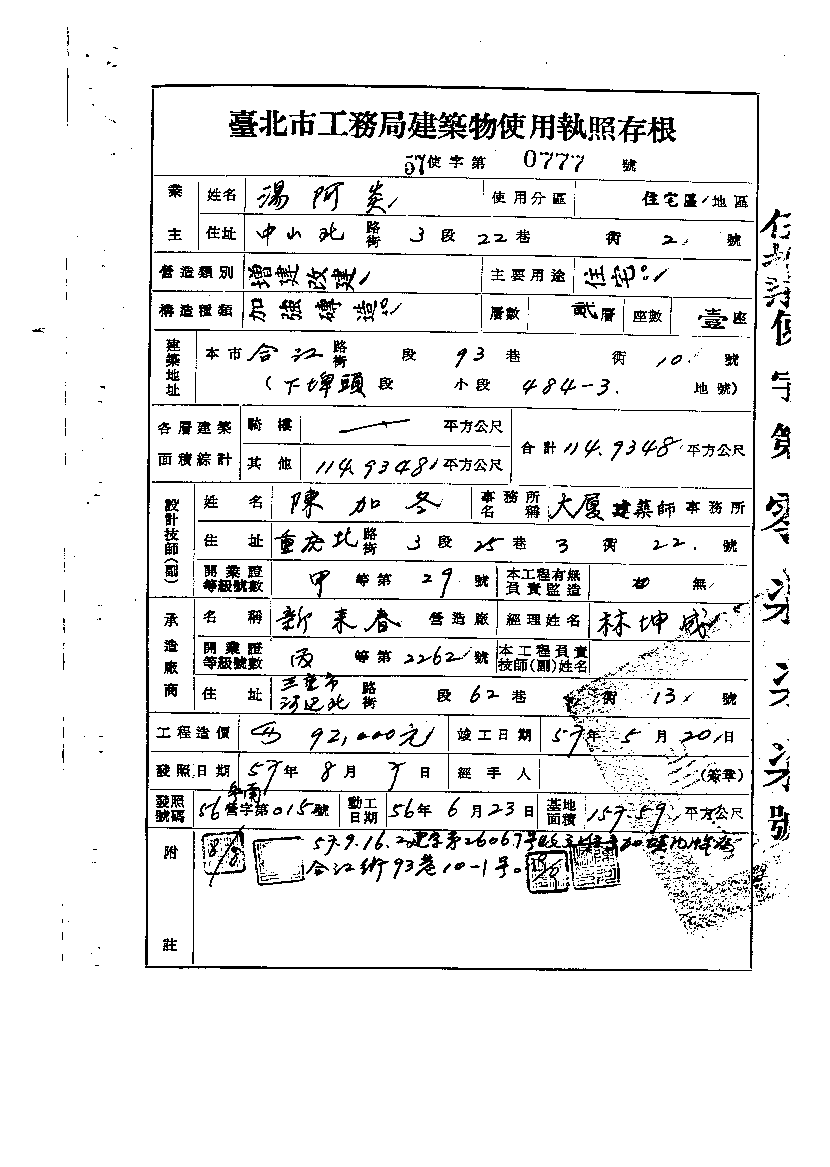 臺北市工務局建築物使用執照存根
57使字第 0777 號
業主 姓名 湯阿炎 使用分區 住宅區 地區
住址 中山北 路街 3 段 22 巷 衖 2 號
營造類別 增建改建 主要用途 住宅
構造種類 加強磚造 層數 貳層 座數 壹座
建築地址 本市 合江 路街 段 93 巷 衖 10 號
(下埤頭 段 小段 484-3 地號)
各層建築面積綜計 騎樓 平方公尺 合計 114.9348 平方公尺
其他 114.9348 平方公尺
設計技師(副) 姓名 陳加冬 事務所名稱 大廈建築師事務所
住址 重慶北 路街 3 段 25 巷 3 衖 22 號
開業證等級號數 甲 等第 29 號 本工程有無負責監造 無
承造廠商 名稱 新來春 營造廠 經理姓名 林坤威
開業證等級號數 丙 等第 2262 號 本工程負責技師(副)姓名
住址 三重市河邊北 路街 段 62 巷 衖 13 號
工程造價 92,000元 竣工日期 57年 5 月 20 日
發照日期 57年 8 月 7 日 經手人 (簽章)
發照號碼 56營字第 015 號 動工日期 56年 6 月 23 日 基地面積 157.59 平方公尺
附註 57.9.16.
合江街93巷10-1号。
使字第零柒柒柒號